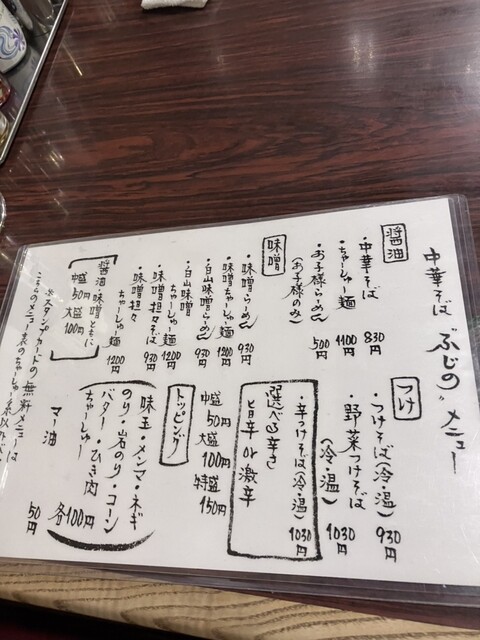 中華そば ぶじの メニュー
醤油
・中華そば 830
・ちゃーしゅー麺 1100
・お子様らーめん 500
(お子様のみ) 円
味噌
・味噌らーめん 930
・味噌ちゃーしゅー麺 1200
・白山味噌らーめん 930
・白山味噌ちゃーしゅー麺 1200
・味噌担々そば 930
味噌担々ちゃーしゅー麺 1200円
醤油・味噌ともに
中盛 50円 大盛 100円
※スタンプカードの無料メニューは
つけ
・つけそば(冷・温) 930円
・野菜つけそば(冷・温) 1030円
・辛つけそば(冷・温) 1030円
選べる辛さ
旨辛or激辛
中盛 50円 大盛 100円 特盛 150円
トッピング
味玉・メンマ・ネギ
のり・岩のり・コーン
バター・ひき肉
ちゃーしゅー 各100円
マー油 50円